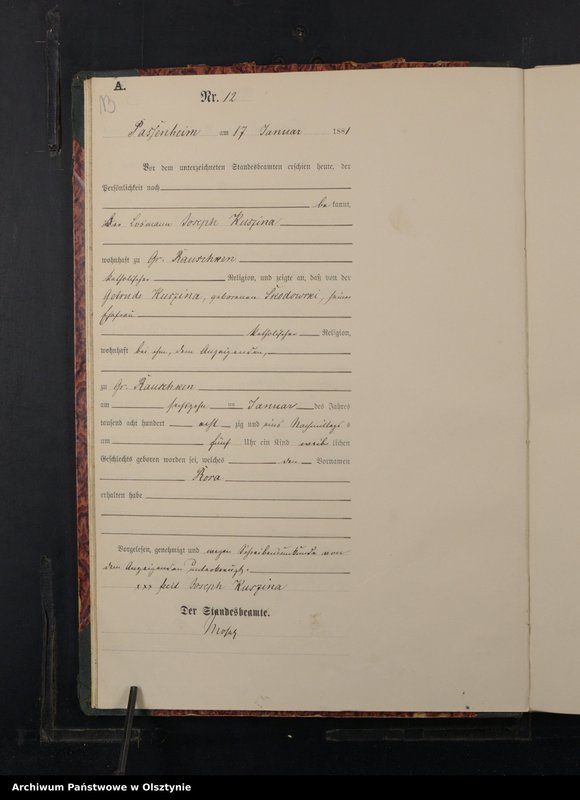 A.
Nr. 12
Passenheim am 17 Januar 1881
Vor dem unterzeichneten Standesbeamten erschien heute, der
Persönlichkeit nach
be kannt,
der Losmann Joseph Kuszina
wohnhaft zu Gr. Rauschken
katholischer Religion, und zeigte an, daß von der
Gotrude Kuszina, geborenen Skodowski, seiner
Ehefrau
katholischer Religion,
wohnhaft bei ihm, dem Anzeigenden,
zu Gr. Rauschken
am sechszehn ten Januar des Jahres
tausend acht hundert acht zig und eins Nachmittags
um fünf Uhr ein Kind weib lichen
Geschlechts geboren worden sei, welches den Vornamen
Rora
erhalten habe
Vorgelesen, genehmigt und wegen Schreibensunkunde von
dem Anzeigenden unterkreuzt.
xxx Joseph Kuszina
Der Standesbeamte.
Archiwum Państwowe w Olsztynie